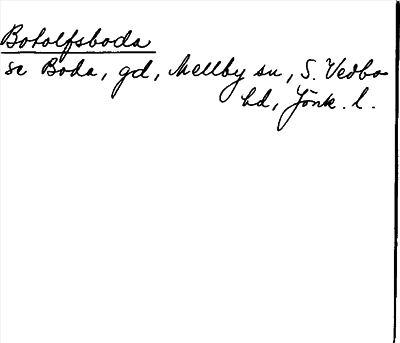 Botolfsboda
se Boda, gd, Mellby sn, S. Vedbo
hd, Jönk. l.